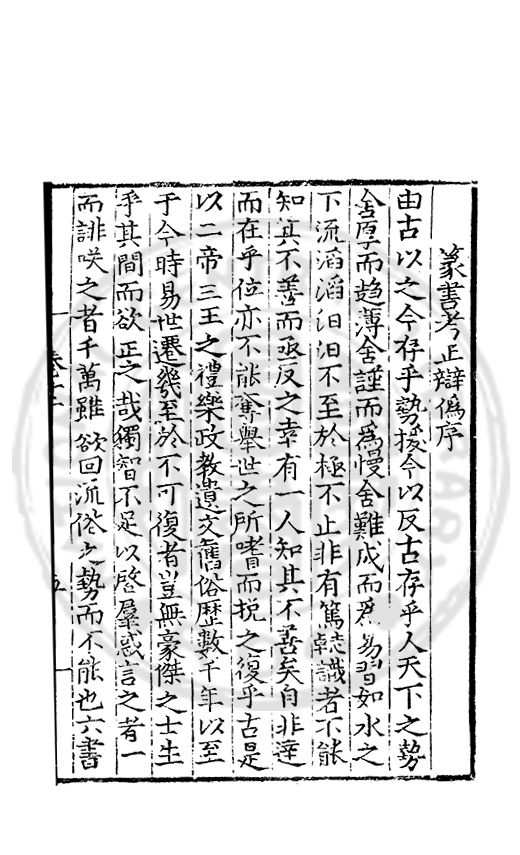 篆書考正辯偽序
由古以之今存乎勢援今以反古存乎人天下之勢
舍厚而趨薄舍謹而爲慢舍難成而爲易習如水之
下流滔滔汨汨不至於極不止非有篤志識者不能
知其不善而亟反之幸有一人知其不善矣自非達
而在乎位亦不能奪舉世之所嗜而挩之復乎古是
以二帝三王之禮樂政教遺文舊俗歷數千年以至
于今時易世遷幾至於不可復者豈無豪傑之士生
乎其間而欲正之哉獨智不足以啓羣惑言之者一
而誹咲之者千萬雖欲回流俗之勢而不能也六書